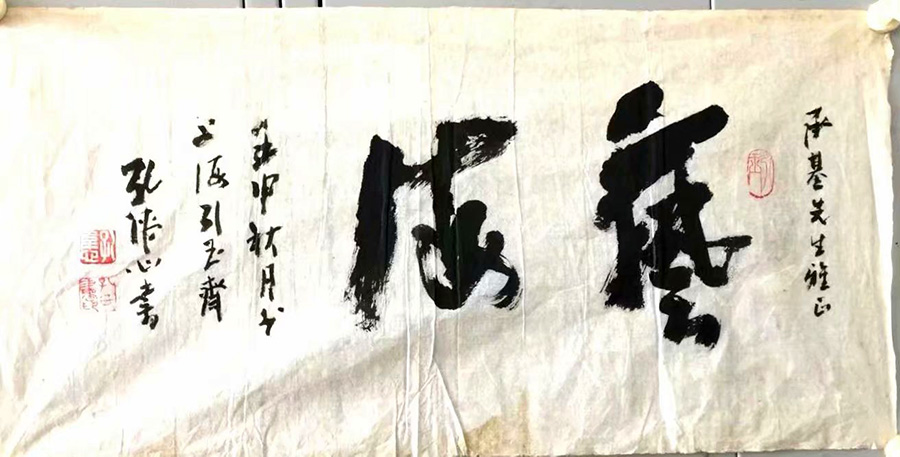 承基先生雅正
藝海
申秋月于
上海引玉齋
孔心書